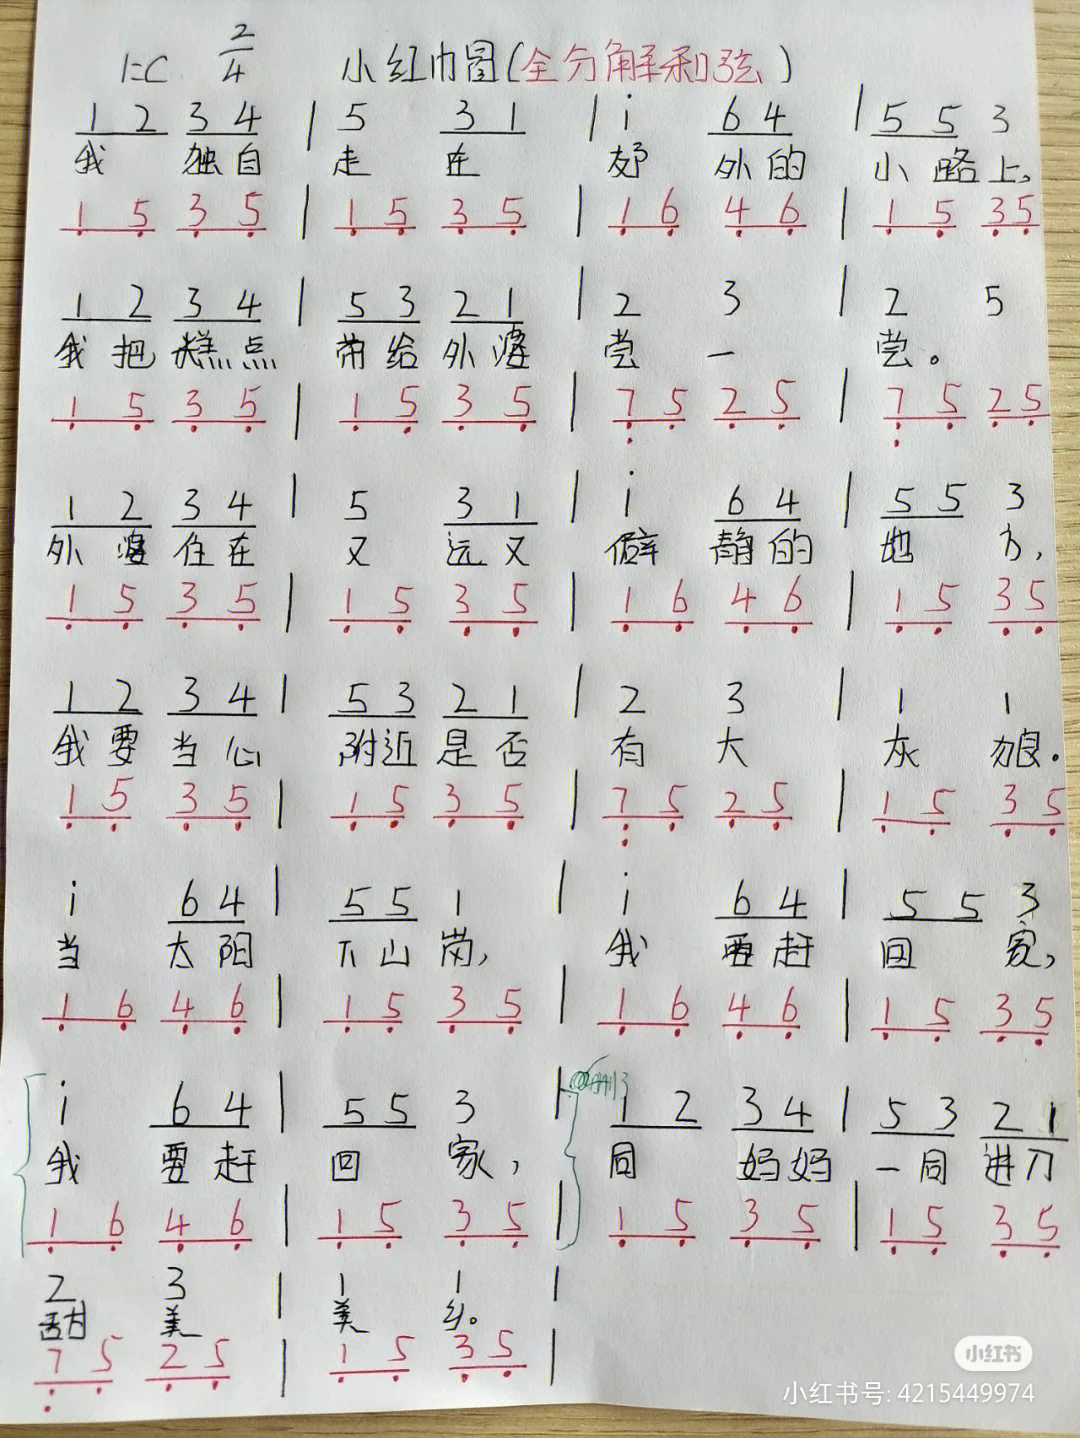 1=C 2/4 小红巾图(全分解和弦)
1 2 3 4 | 5 3 1 | i 6 4 | 5 5 3
我 独自 走 在 郊 外的 小路上,
1 5 3 5 | 1 5 3 5 | 1 6 4 6 | 1 5 3 5
1 2 3 4 | 5 3 2 1 | 2 3 | 2 5
我把糕点 带给外婆 尝 一 尝。
1 5 3 5 | 1 5 3 5 | 7 5 2 5 | 7 5 2 5
1 2 3 4 | 5 3 1 | i 6 4 | 5 5 3
外婆住在 又 远又 僻 静的 地 方,
1 5 3 5 | 1 5 3 5 | 1 6 4 6 | 1 5 3 5
1 2 3 4 | 5 3 2 1 | 2 3 | 1 1
我要当心 附近是否 有 大 灰 狼。
1 5 3 5 | 1 5 3 5 | 7 5 2 5 | 1 5 3 5
i 6 4 | 5 5 1 | i 6 4 | 5 5 3
当 太阳 下山岗, 我 要赶 回 家,
1 6 4 6 | 1 5 3 5 | 1 6 4 6 | 1 5 3 5
i 6 4 | 5 5 3 | 1 2 3 4 | 5 3 2 1
我 要赶 回 家, 同 妈妈 一同进
1 6 4 6 | 1 5 3 5 | 1 5 3 5 | 1 5 3 5
2 3 | 1 1 |
甜 美 美 乡。
7 5 2 5 | 1 5 3 5 |
小红书
小红书号: 4215449974